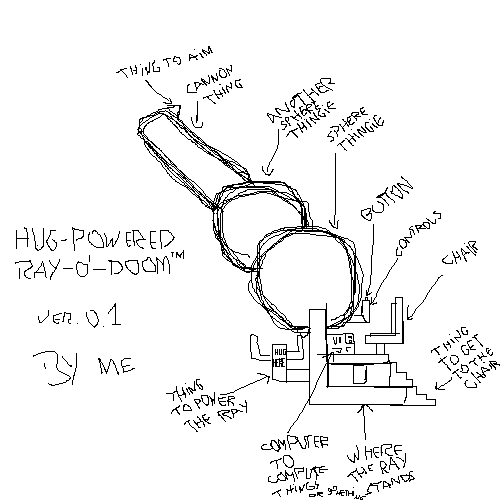 THING TO AIM
CANNON
THING
ANOTHER
SPHERE
THINGIE
SPHERE
THINGIE
BUTTON
CONTROLS
CHAIR
HUG-POWERED
RAY-O'-DOOM™
VER. 0.1
BY ME
HUG
HERE
THING
TO POWER
THE RAY
COMPUTER
TO
COMPUTE
THINGS OR SOMETHING
WHERE
THE RAY
STANDS
THING
TO GET
TO THE
CHAIR